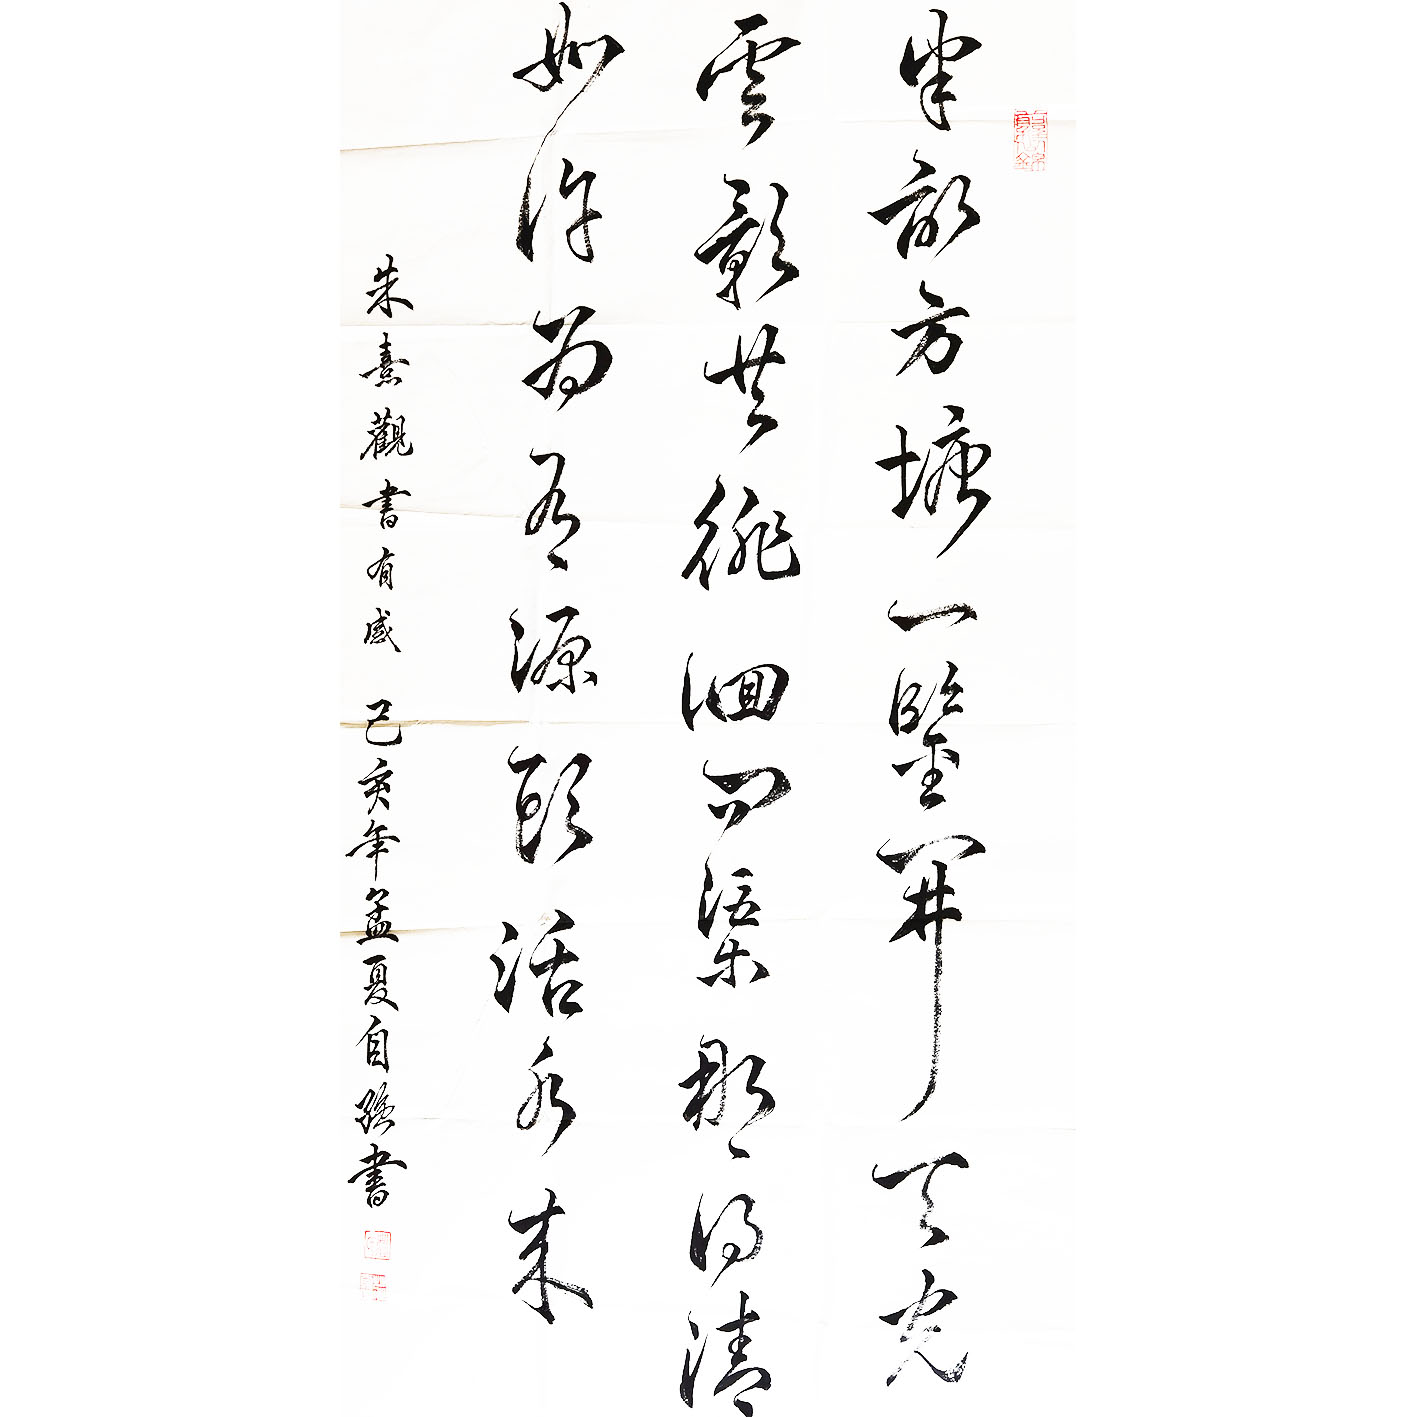 半畝方塘一鑒開天光
雲影共徘徊問渠那得清
如許為有源頭活水來
朱熹觀書有感 己亥年孟夏自強書